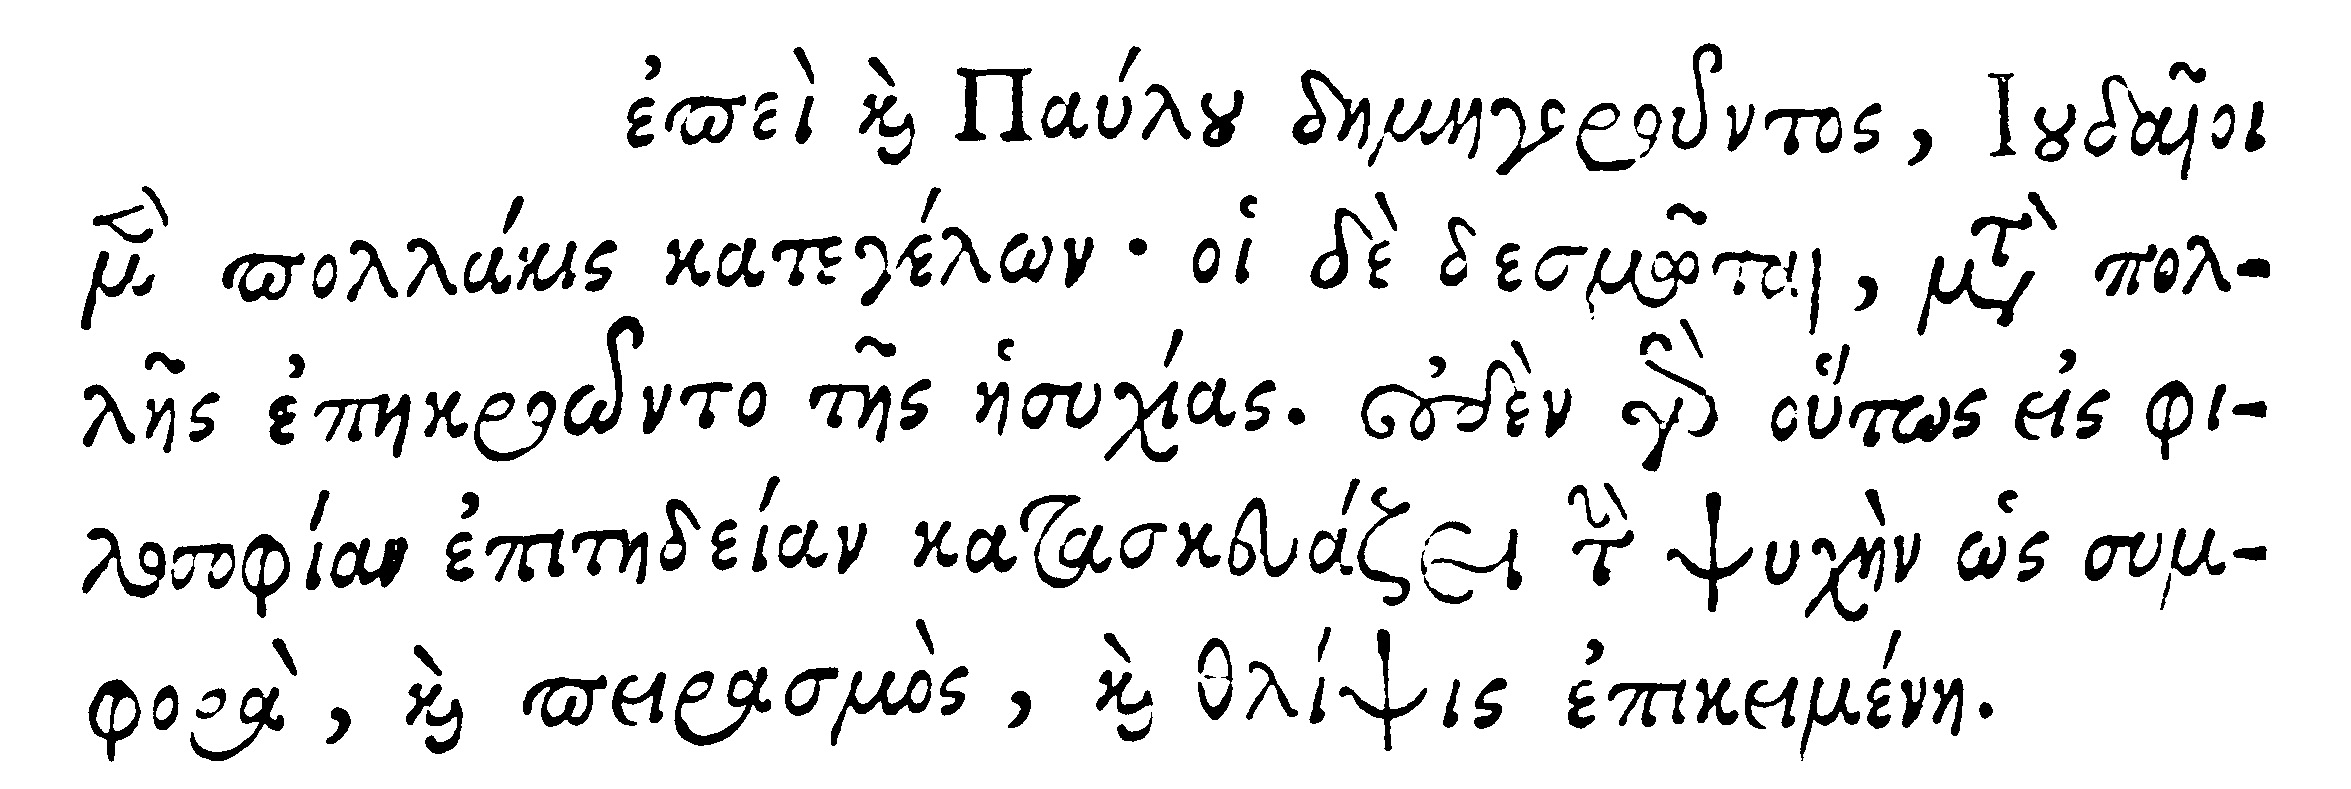 ἐπεὶ καὶ Παύλου δημηγοροῦντος, Ιουδαῖοι
μὲν πολλάκις κατεγέλων· οἱ δὲ δεσμῶται, μετὰ πολ-
λῆς ἐπηκροῶντο τῆς ἡσυχίας. οὐδὲν γὰρ οὕτως εἰς φι-
λοσοφίαν ἐπιτηδείαν κατασκευάζει τὴν ψυχὴν ὡς συμ-
φορὰ, καὶ πειρασμὸς, καὶ θλίψις ἐπικειμένη.